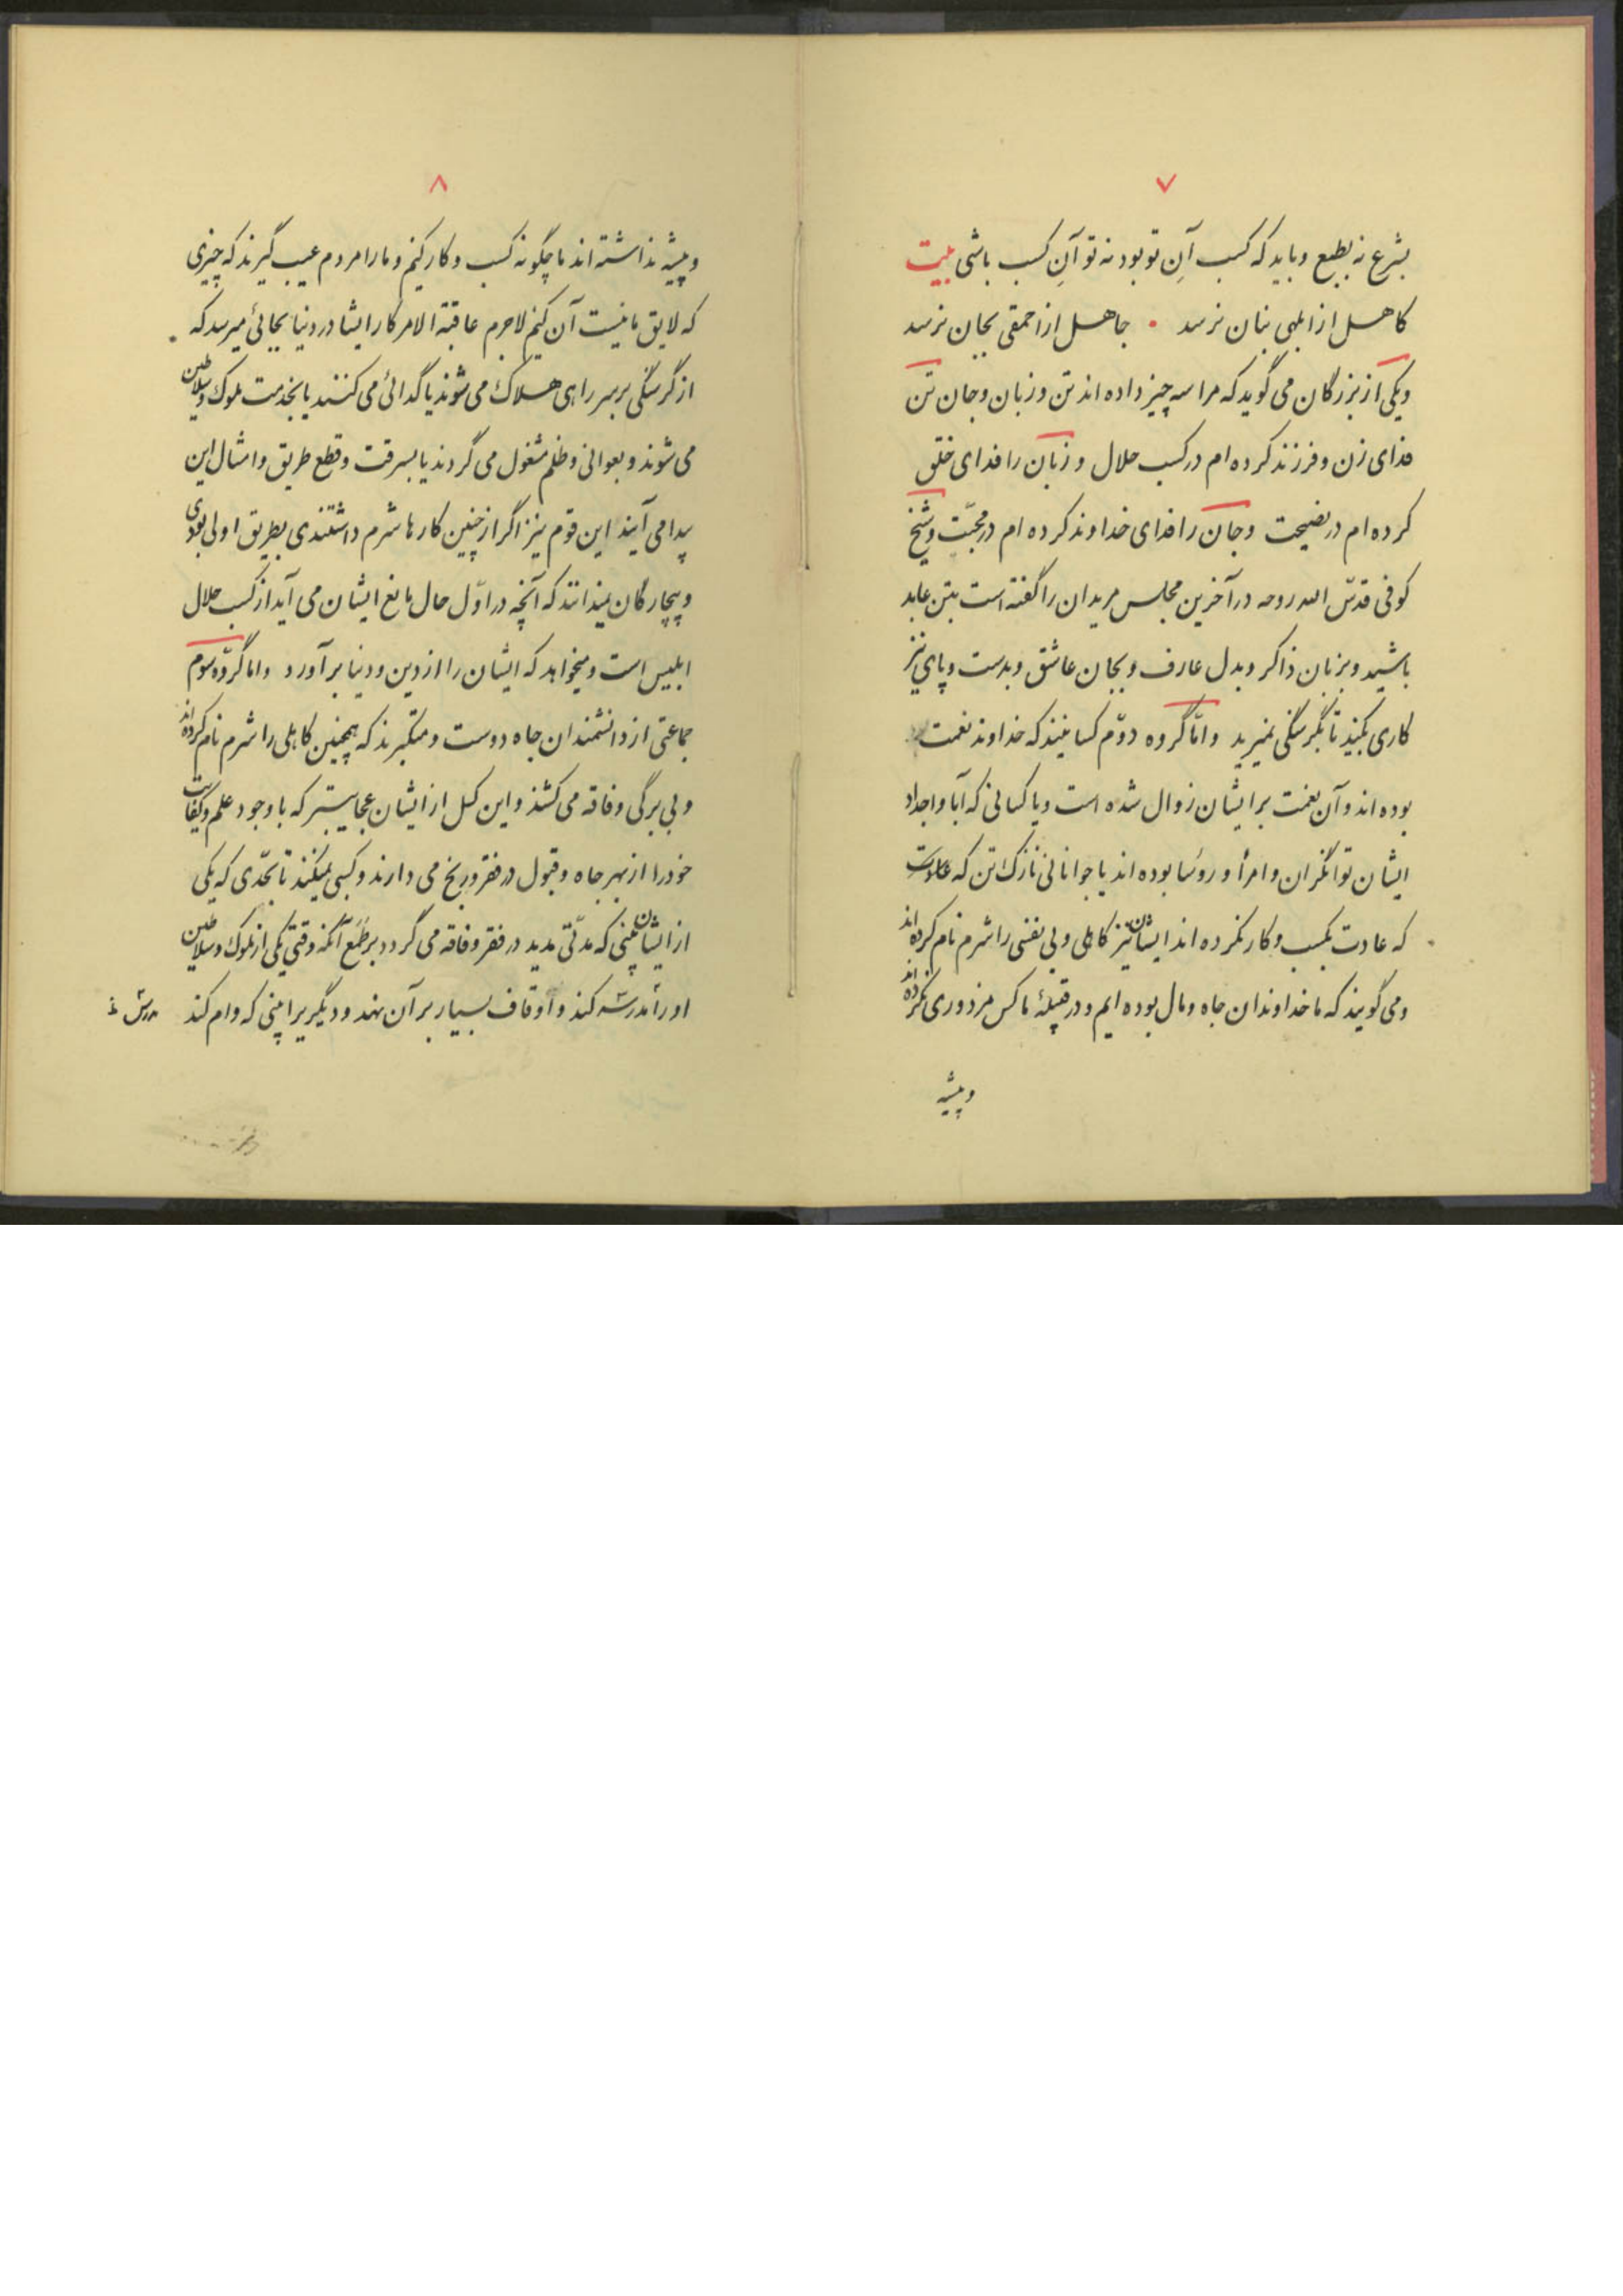 ۷
بشرع نه بطبع وباید که کسب آنِ تو بود نه تو آنِ کسب باشی بیت
کاهل از ابلهی بنان نرسد • جاهل از احمقی بجان نرسد
ویکی از بزرگان می گوید که مرا سه چیز داده اند تن و زبان وجان تن
فدای زن و فرزند کرده ام در کسب حلال و زبان را فدای خلق
کرده ام در نصیحت وجان را فدای خداوند کرده ام در محبّت وشیخ
کوفی قدّس الله روحه در آخرین مجلس مریدان را گفته است بتن عابد
باشید وبزبان ذاکر وبدل عارف وبجان عاشق وبدست وپای نیز
کاری بکنید تا بگرسنگی نمیرید وامّا گروه دوّم کسانیند که خداوند نعمت
بوده اند وآن نعمت بر ایشان زوال شده است ویا کسانی که آبا واجداد
ایشان توانگران وامرأ و روٴسا بوده اند یا جوانانی نازک تن که
که عادت بکسب وکار نکرده اند ایشان نیز کاهلی وبی نفسی را شرم نام کرده اند
ومی گویند که ما خداوندان جاه ومال بوده ایم ودر قبیلهٔ ما کس مزدوری نکرده اند
وپیشه
۸
وپیشه نداشته اند ما چگونه کسب وکار کنیم وما را مردم عیب گیرند که چیزی
که لایق ما نیست آن کنیم لاجرم عاقبة الامر کار ایشا در دنیا بجائی میرسد که
از گرسنگی بر سر راهی هلاک می شوند یا گدائی می کنند یا بخدمت ملوک وسلاطین
می شوند وبعوانی وظلم مشغول می گردند یا بسرقت وقطع طریق وامثال این
پیدا می آیند این قوم نیز اگر از چنین کارها شرم داشتندی بطریق اولی بودی
وبیچارگان نمیدانند که آنچه در اوّل حال مانع ایشان می آید از کسب حلال
ابلیس است ومیخواهد که ایشان را از دین ودنیا بر آورد واما گروه سوم
جماعتی از دانشمندان جاه دوست ومتکبرند که همچنین کاهلی را شرم نام کرده اند
وبی برگی وفاقه می کشند واین کسل از ایشان عجایبتر که با وجود علم وکفایت
خود را از بهر جاه وقبول در فقر ورنج می دارند وکسبی نمیکنند تا بحدّی که یکی
از ایشان بینی که مدّتی مدید در فقر وفاقه می گردد بر طمع آنکه وقتی یکی از ملوک وسلاطین
او را مدرسه کند واوقاف بسیار بر آن نهد ودیگریرا بینی که وام کند